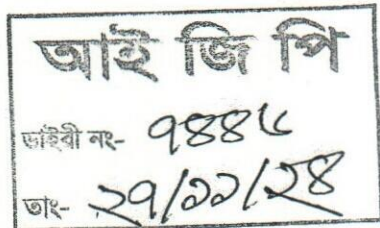 আই জি পি
ডাইরী নং- ৭৪৪৬
তাং- ২৭/১১/২৪